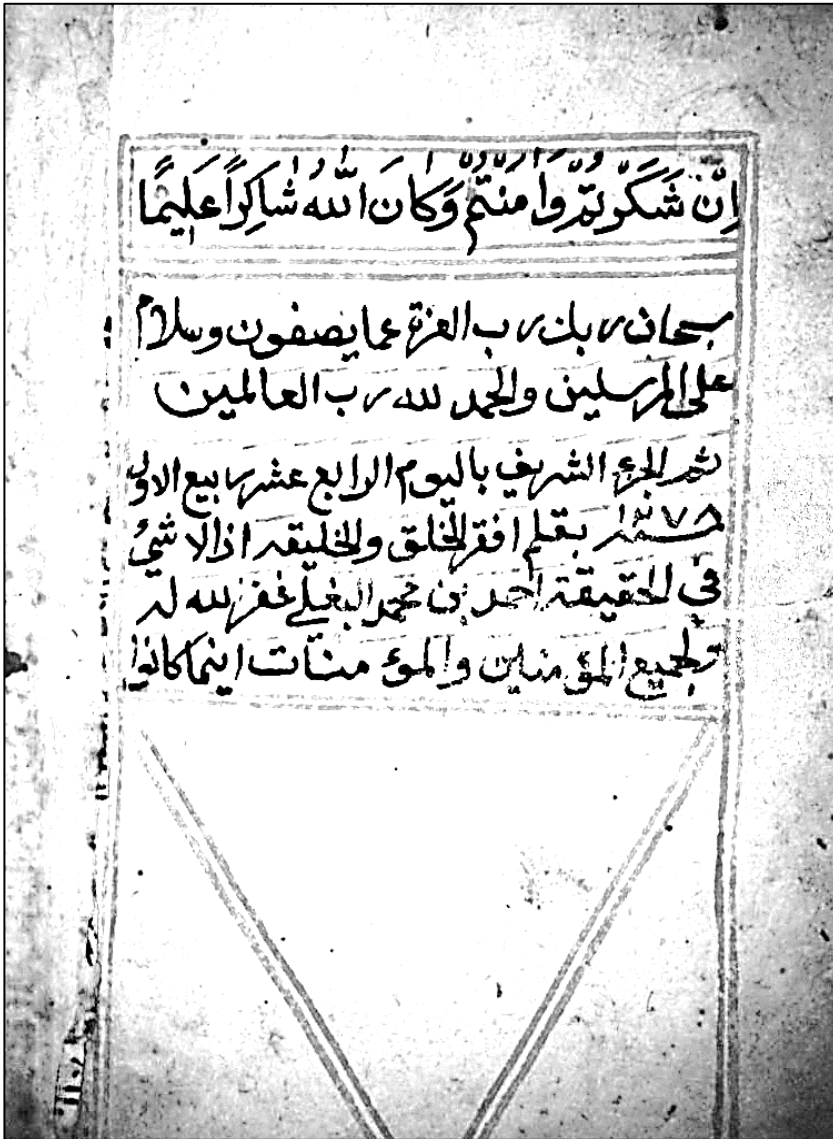 اِنْ شَكَرْتُمْ وَاٰمَنْتُمْ وَكَانَ اللّٰهُ شَاكِرًا عَلِيمًا
سبحان ربك رب العزة عما يصفون وسلام
على المرسلين والحمد لله رب العالمين
الجزء الشريف باليوم الرابع عشر ربيع الاول
بقلم افقر الخلق والخليقه اذالاشئ
في الحقيقة احمد بن محمد غفر لله له
ولجميع المؤمنين والمؤ منات اينما كانوا